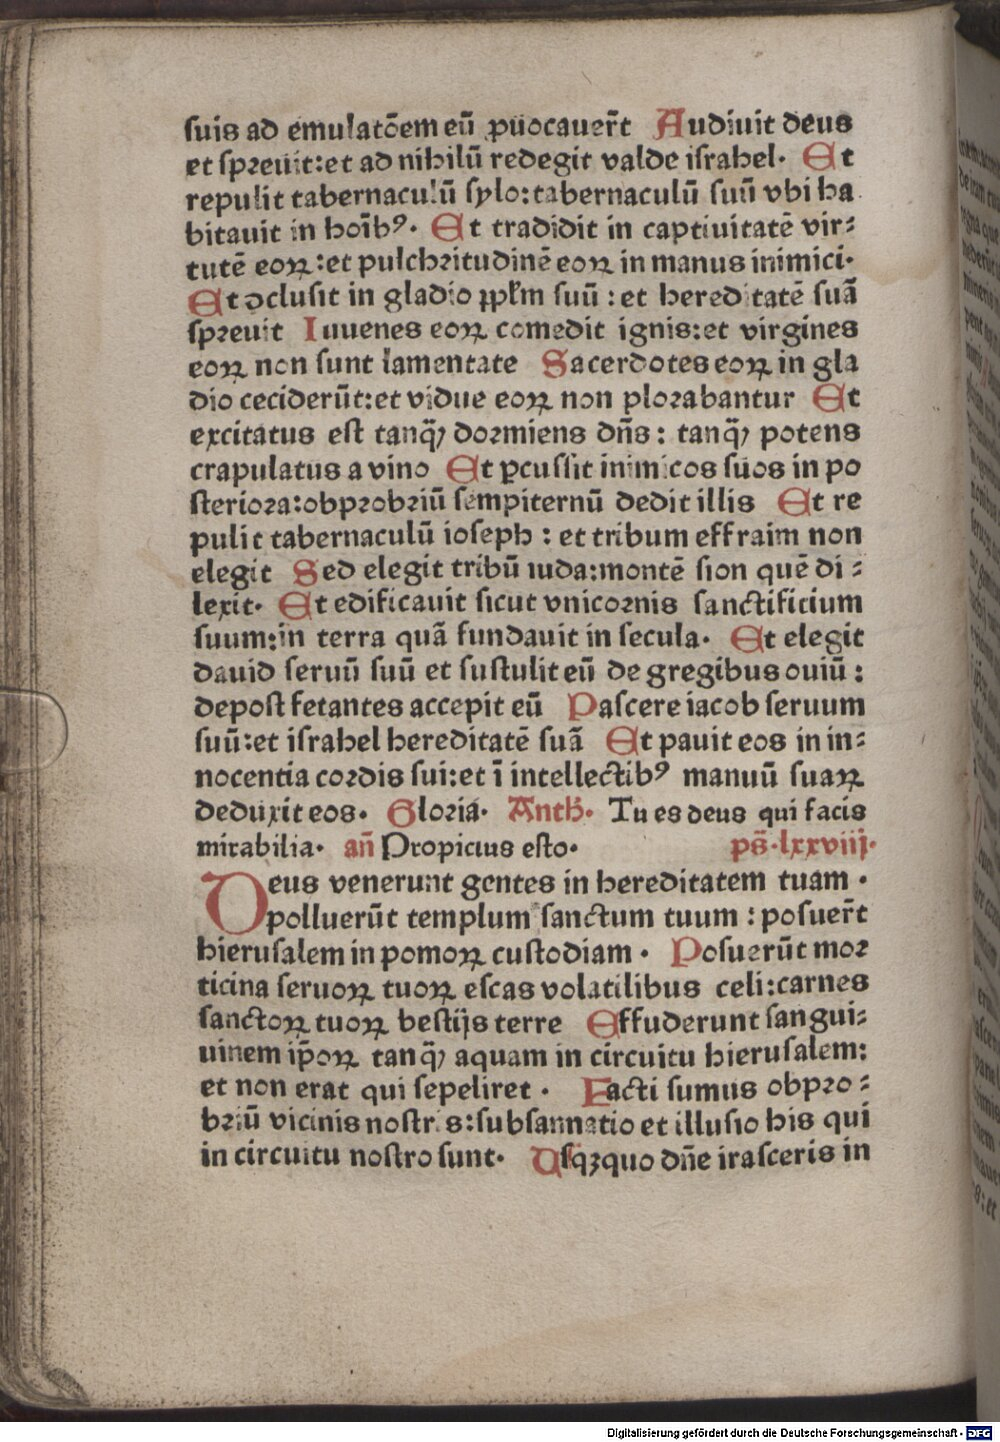 suis ad emulatōem eū ꝓuocauer̄t Audiuit deus
et spreuit:et ad nihilū redegit valde israhel. Et
repulit tabernaculū sylo:tabernaculū suū vbi ha
bitauit in hoīb⁹. Et tradidit in captiuitatē vir⸗
tutē eoꝝ:et pulchritudinē eoꝝ in manus inimici.
Et ↄclusit in gladio ppl̄m suū : et hereditatē suā
spreuit Iuuenes eoꝝ comedit ignis:et virgines
eoꝝ non sunt lamentate Sacerdotes eoꝝ in gla
dio ceciderūt:et vidue eoꝝ non plorabantur Et
excitatus est tanꝙ̄ dormiens dn̄s : tanꝙ̄ potens
crapulatus a vino Et ꝑcussit inimicos suos in po
steriora:obprobriū sempiternū dedit illis Et re
pulit tabernaculū ioseph : et tribum effraim non
elegit Sed elegit tribū iuda:montē sion quē di⸗
lexit. Et edificauit sicut vnicornis sanctificium
suum:in terra quā fundauit in secula. Et elegit
dauid seruū suū et sustulit eū de gregibus ouiū :
depost fetantes accepit eū Pascere iacob seruum
suū:et israhel hereditatē suā Et pauit eos in in⸗
nocentia cordis sui:et ī intellectib⁹ manuū suaꝝ
deduxit eos. Gloria. Anth̄. Tu es deus qui facis
mirabilia. an̄ Propicius esto. ps̄.lxxviij.
Deus venerunt gentes in hereditatem tuam .
polluerūt templum sanctum tuum : posuer̄t
hierusalem in pomoꝝ custodiam . Posuerūt mor
ticina seruoꝝ tuoꝝ escas volatilibus celi:carnes
sanctoꝝ tuoꝝ bestijs terre Effuderunt sangui⸗
uinem ip̄oꝝ tanꝙ̄ aquam in circuitu hierusalem:
et non erat qui sepeliret . Facti sumus obpro⸗
briū vicinis nostris:subsannatio et illusio his qui
in circuitu nostro sunt. Usqꝫquo dn̄e irasceris in
Digitalisierung gefördert durch die Deutsche Forschungsgemeinschaft - DFG